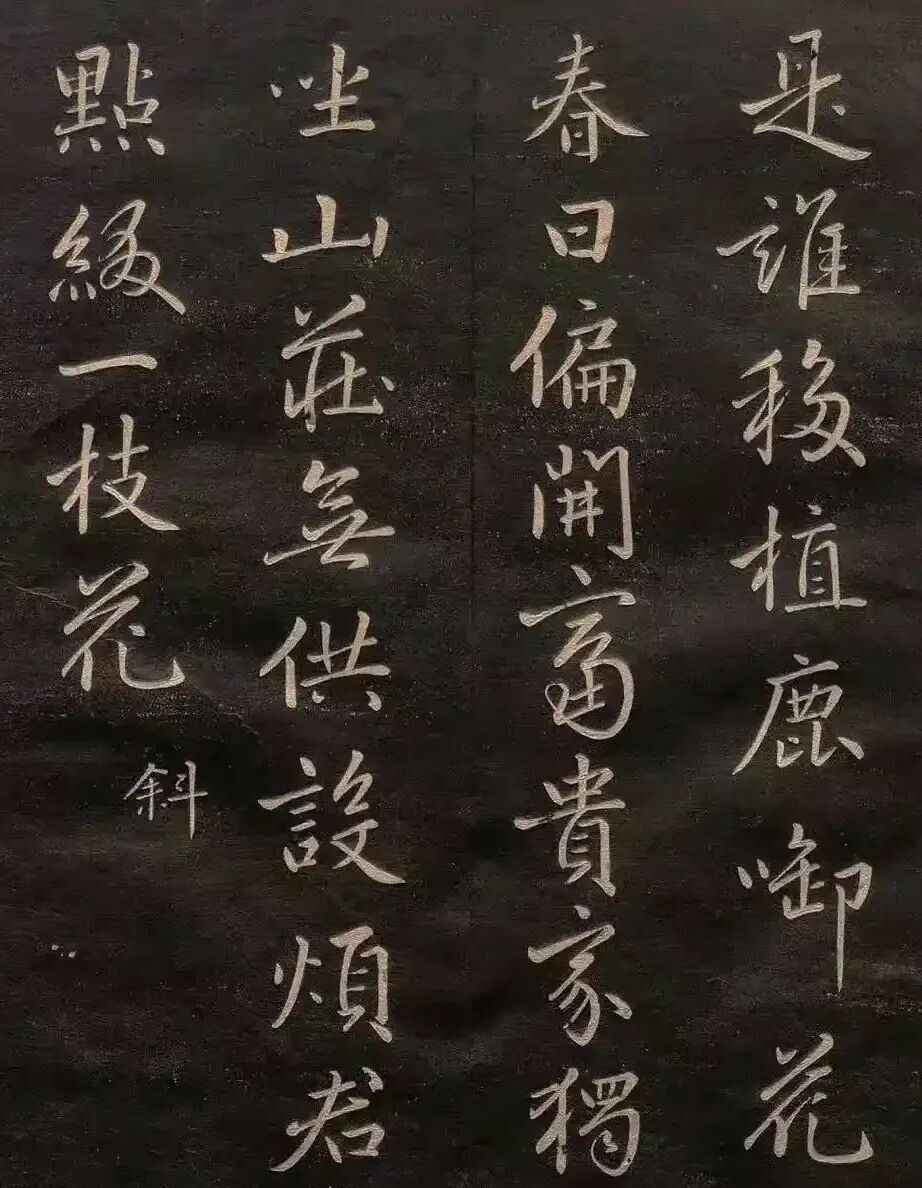 是誰移植鹿啣花
春日偏開富貴家獨
坐山莊無供設煩君
點綴一枝花
斜